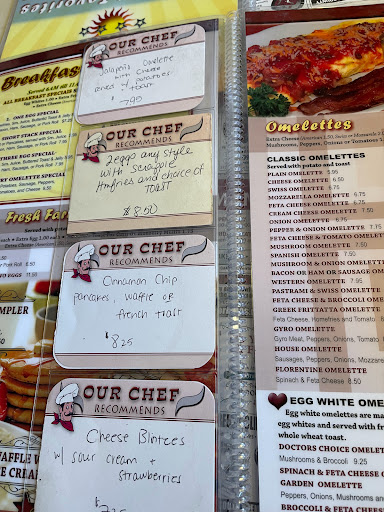 Favorites
OUR CHEF
RECOMMENDS
Jalapeño Omelette
with Cheese
potatoes
+ toast
7.95
OUR CHEF
RECOMMENDS
2 eggs any style
with scrapple
Hmfries and choice of
TOAST
$8.50
OUR CHEF
RECOMMENDS
Cinnamon Chip
pancakes, waffle or
french toast
$8.25
OUR CHEF
RECOMMENDS
Cheese Blintzes
w/ sour cream +
strawberries
Breakfast
ALL BREAKFAST SPECIALS
1. ONE EGG SPECIAL
SHORT STACK SPECIAL
THREE EGG SPECIAL
OMELETTE SPECIAL
Fresh Far
MPLER
WAFFLE
Omelettes
Mushrooms, Peppers, Onions or Tomatoes
CLASSIC OMELETTES
Served with potato and toast
PLAIN OMELETTE 5.95
CHEESE OMELETTE 6.50
SWISS OMELETTE 6.75
MOZZARELLA OMETTE 6.75
FETA CHEESE OMELETTE 6.95
CREAM CHEESE OMELETTE 7.50
ONION OMELETTE 6.75
PEPPER & ONION OMELETTE 7.75
FETA CHEESE & TOMATO OMELET
MUSHROOM OMELETTE 7.50
SPANISH OMELETTE 7.50
MUSHROOM & ONION OMELETTE
BACON OR HAM OR SAUSAGE OM
WESTERN OMELETTE 7.95
PASTRAMI & SWISS OMELETTE
FETA CHEESE & BROCCOLI OMELE
GREEK FRITTATA OMELETTE
Feta Cheese, Homefries and Tomato
GYRO OMELETTE
Gyro Meat, Peppers, Onions, Tomato
HOUSE OMELETTE
Sausages, Peppers, Onions, Tomatoes
FLORENTINE OMELETTE
Spinach & Feta Cheese 8.50
EGG WHITE OME
Egg white omelettes are ma
egg whites and served with fr
whole wheat toast.
DOCTORS CHOICE OMELETT
Mushrooms & Broccoli 9.25
SPINACH & FETA CHEESE O
GARDEN OMELETTE
Peppers, Onions, Mushrooms an
BROCCOLI & FETA CHEESE